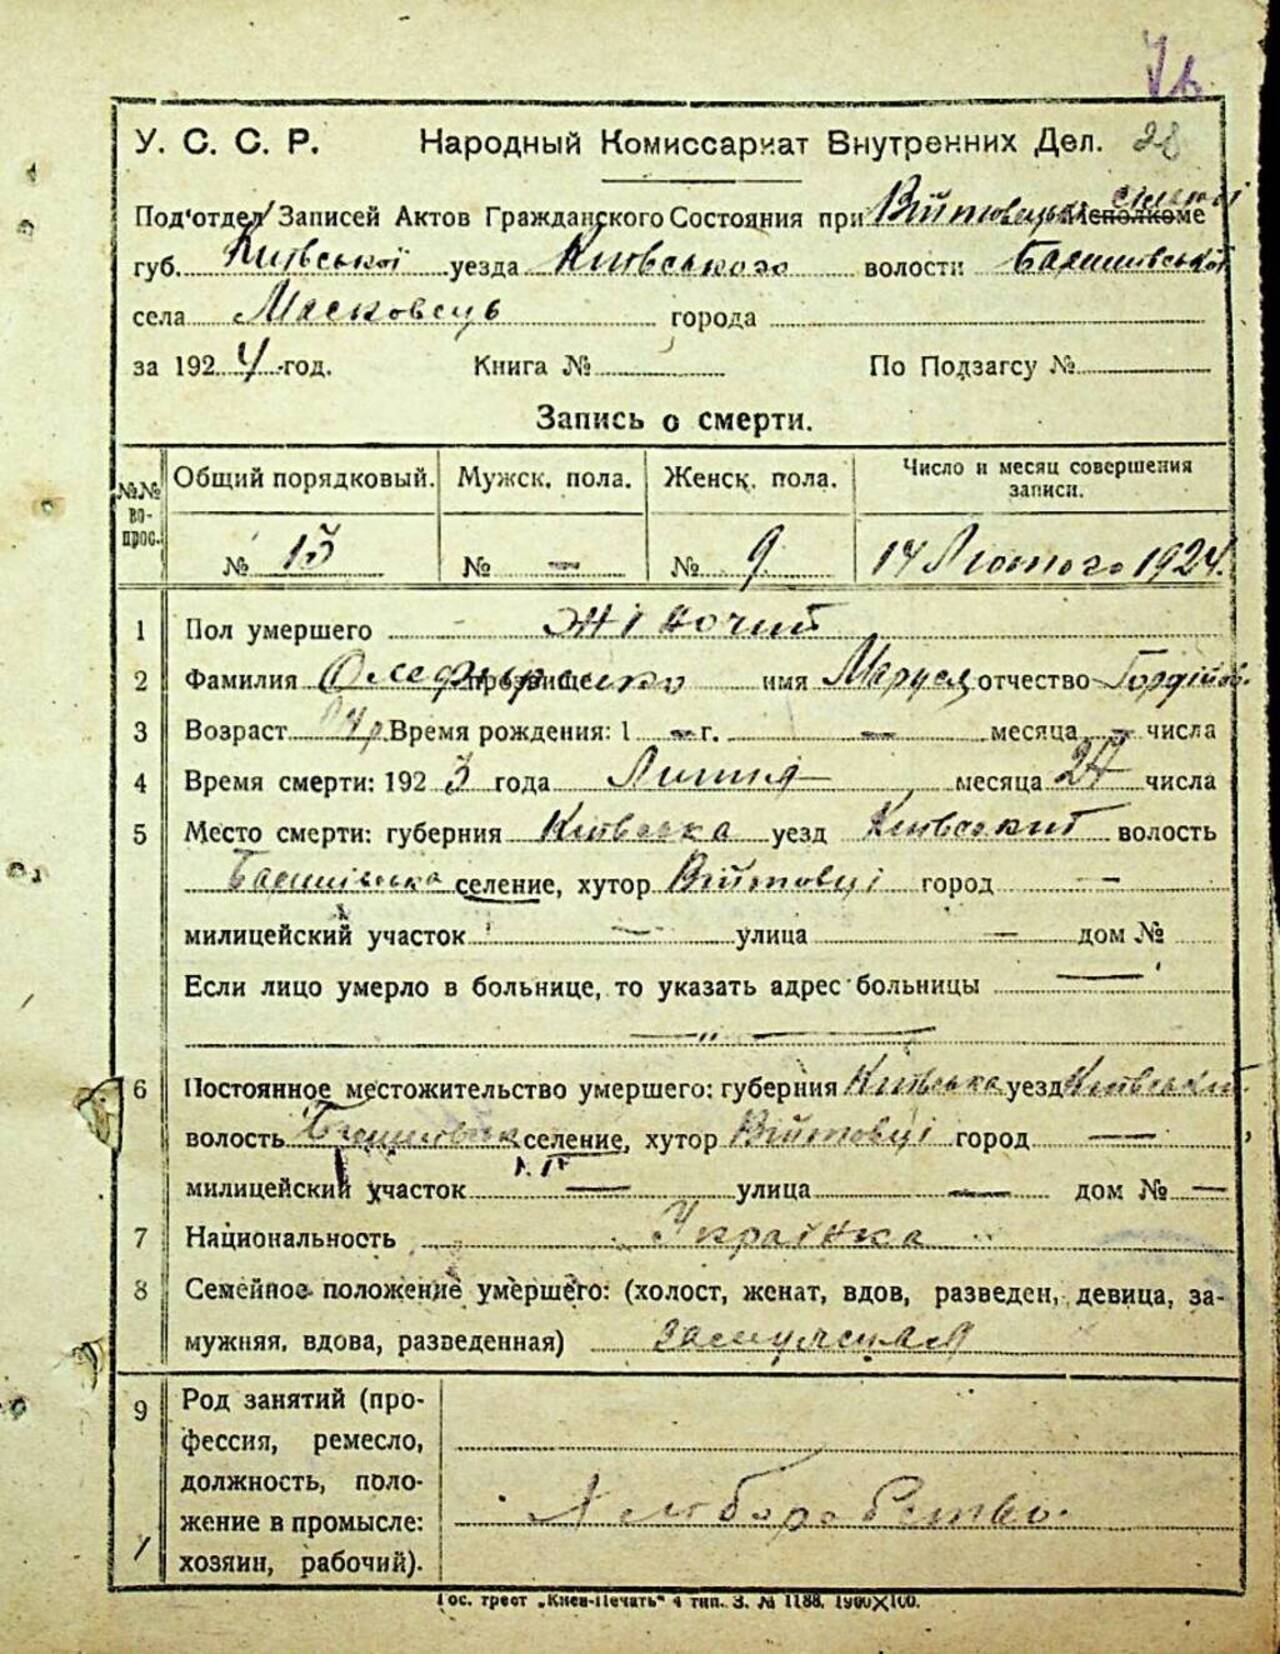 28
У. С. С. Р. Народный Комиссариат Внутренних Дел.
Под'отдел Записей Актов Гражданского Состояния при Війтовецьк. Исполкоме
губ. Київської уезда Київського волости Баришівської
села Масковець города
за 1924 год. Книга № По Подзагсу №
Запись о смерти.
№№ вопрос. Общий порядковый. Мужск. пола. Женск. пола. Число и месяц совершения записи.
№ 15 № — № 9 14 Лютого 1924.
1 Пол умершего Жіночий
2 Фамилия Олефыренко прозвище имя Маруся отчество Гордіїв.
3 Возраст Время рождения: 1 — г. — месяца — числа
4 Время смерти: 1923 года Липня месяца 24 числа
5 Место смерти: губерния Київська уезд Київський волость
Баришівська селение, хутор Війтовці город —
милицейский участок — улица — дом №
Если лицо умерло в больнице, то указать адрес больницы —
— „ —
6 Постоянное местожительство умершего: губерния Київська уезд Київський
волость Баришівська селение, хутор Війтовці город —
милицейский участок — улица — дом № —
7 Национальность Українка
8 Семейное положение умершего: (холост, женат, вдов, разведен, девица, за-
мужняя, вдова, разведенная) замужняя
9 Род занятий (про-
фессия, ремесло,
должность, поло-
жение в промысле:
хозяин, рабочий). Хліборобство.
Гос. трест „Киев-Печать“ 4 тип. З. № 1188. 1900X100.